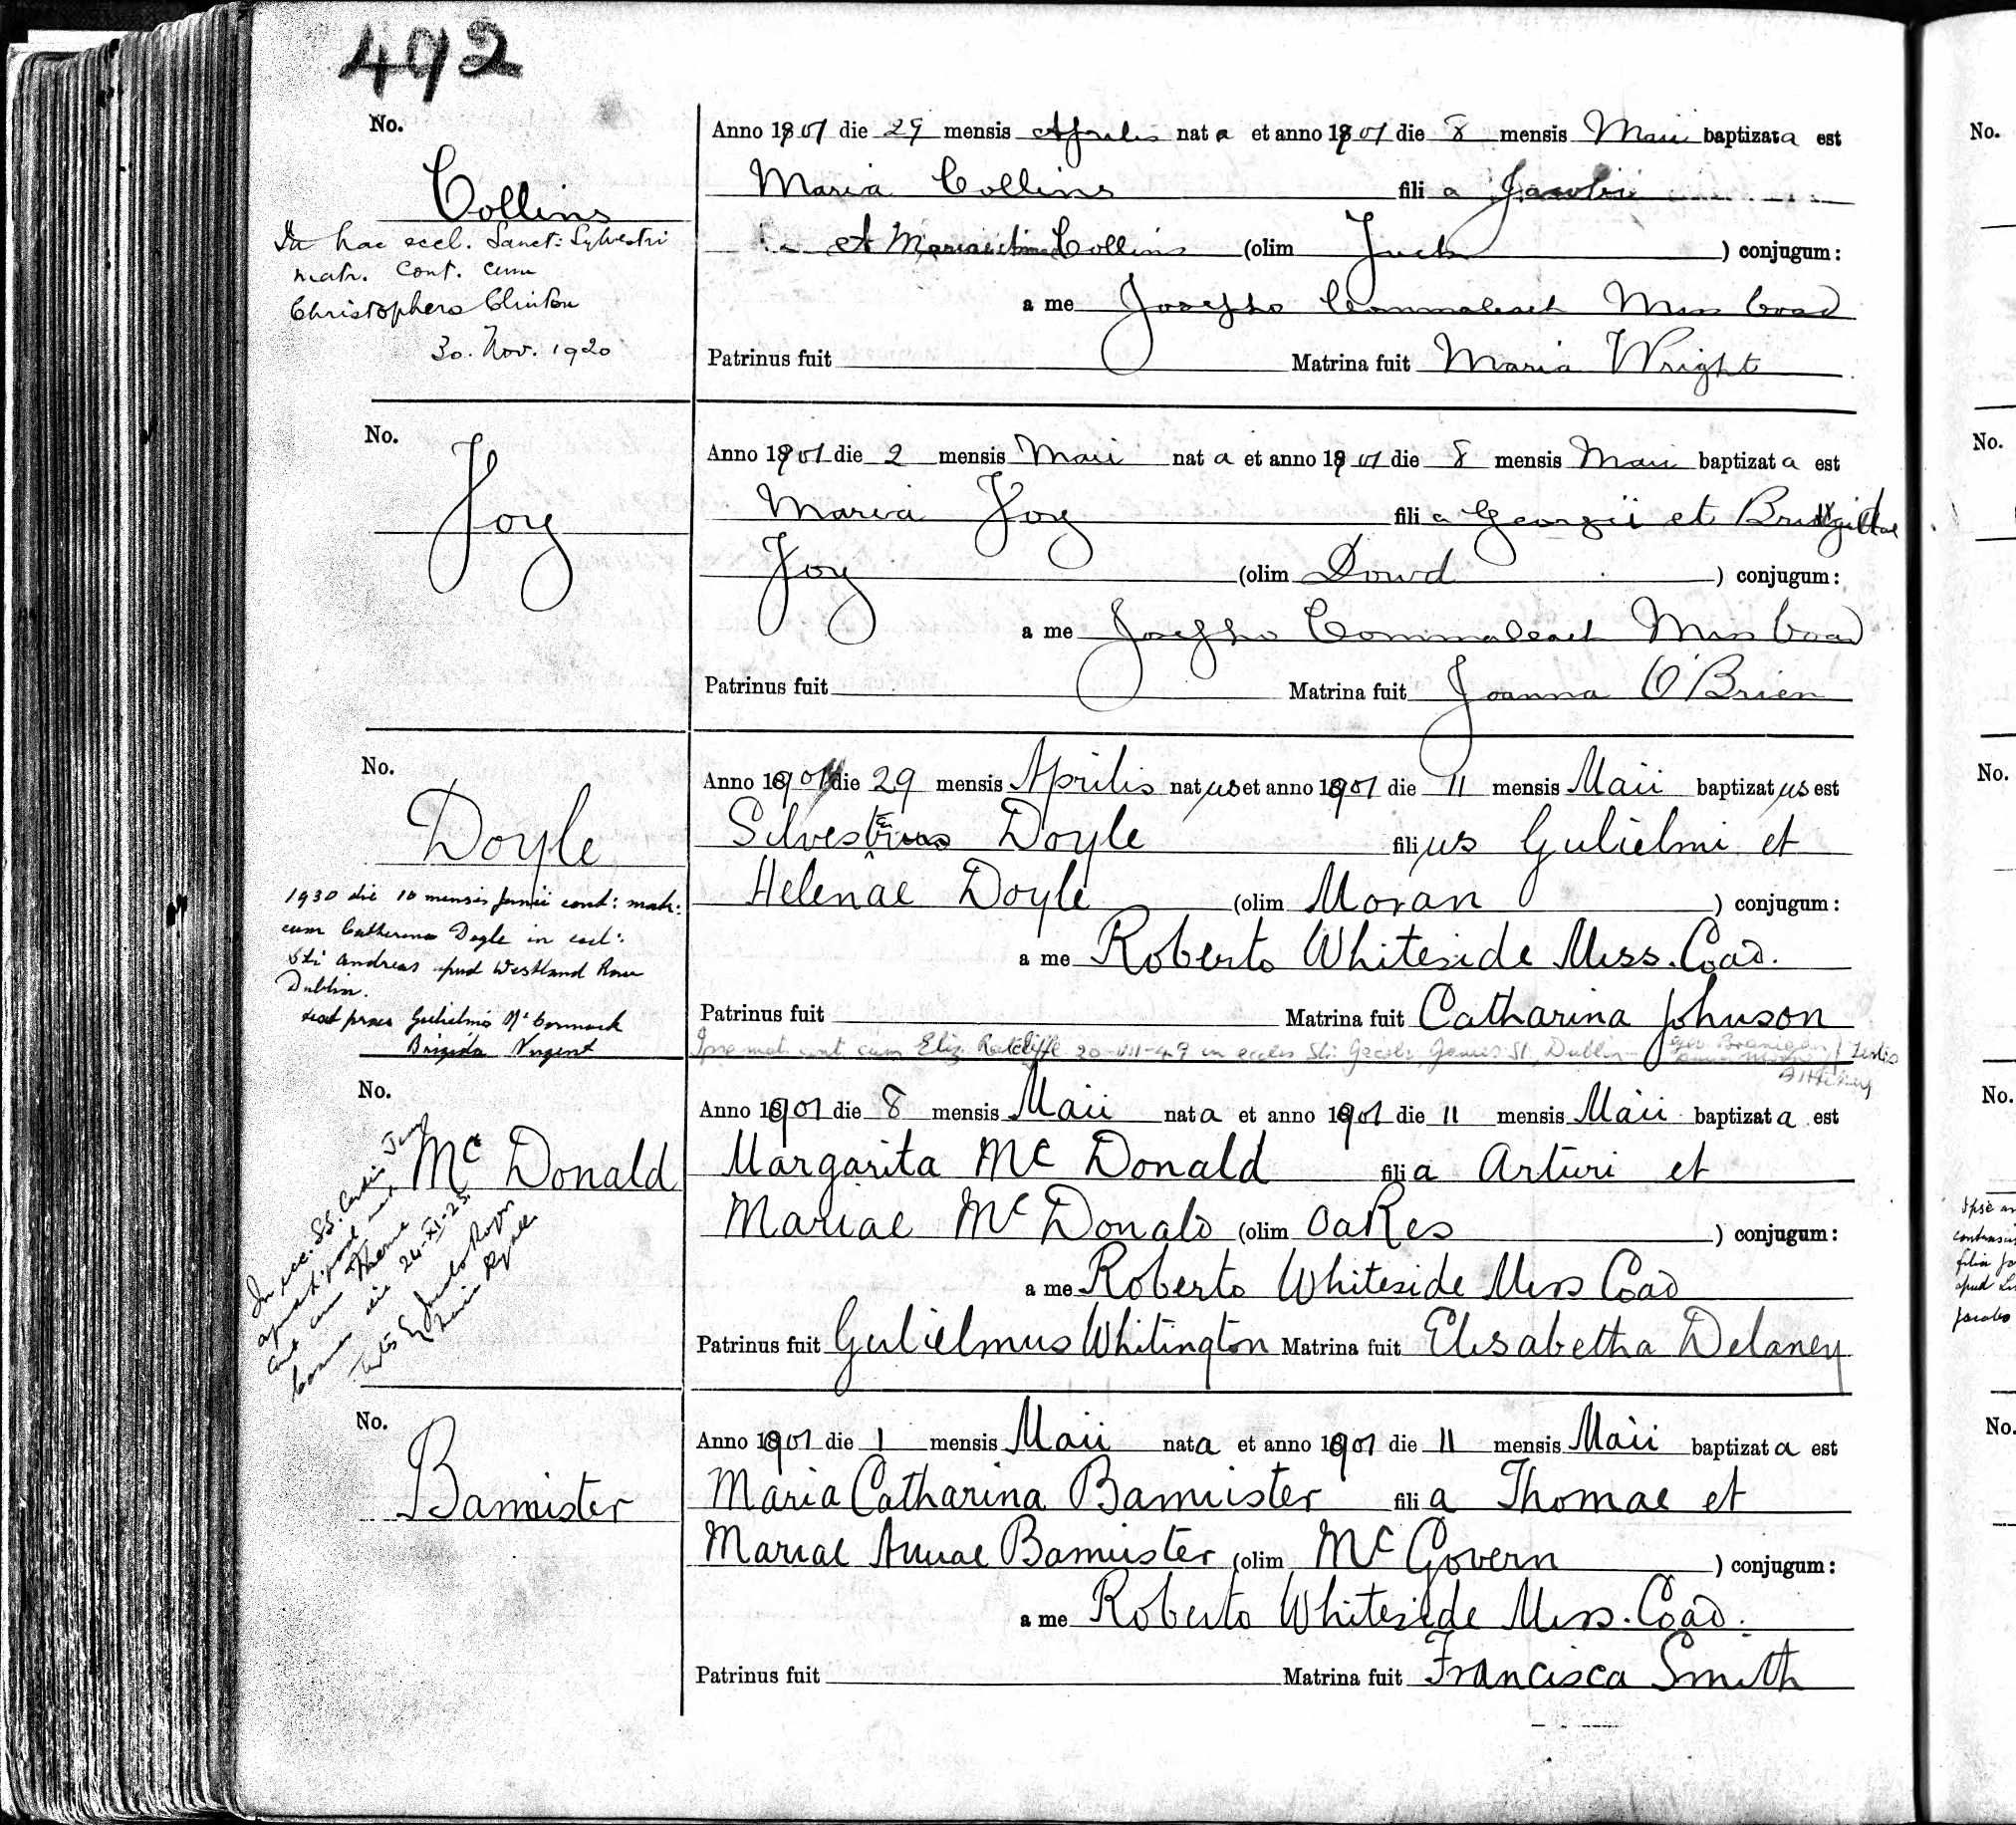 492
No.
Collins
In hac eccl. Sanct: Sylvestri
matr. Cont. cum
Christophero Clinton
30. Nov. 1920
Anno 1901 die 29 mensis Aprilis nat a et anno 1901 die 8 mensis Maii baptizata est
Maria Collins fili a Jacobi
et Mariae Collins (olim ) conjugum:
a me Josepho Miss Coad
Patrinus fuit Matrina fuit Maria Wright
No.
Joy
Anno 1901 die 2 mensis Maii nat a et anno 1901 die 8 mensis Maii baptizat a est
Maria Joy fili a Georgii et Bridgittae
Joy (olim Dowd ) conjugum:
a me Josepho Miss Coad
Patrinus fuit Matrina fuit Joanna O'Brien
No.
Doyle
1930 die 10 mensis Junii cont: matr:
cum Catherina Doyle in eccl:
Sti Andreas apud Westland Row
Dublin.
Gulielmo McCormack
Brigida Nugent
Anno 1901 die 29 mensis Aprilis natus et anno 1901 die 11 mensis Maii baptizatus est
Doyle filius Gulielmi et
Helenae Doyle (olim Moran ) conjugum:
a me Roberto Whiteside Miss. Coad.
Patrinus fuit Matrina fuit Catharina Johnson
cont cum Eliz. Ratcliffe 20-VIII-49 in eccles Sti James St., Dublin
No.
Mc Donald
Anno 1901 die 8 mensis Maii nat a et anno 1901 die 11 mensis Maii baptizat a est
Margarita Mc Donald fili a Arturi et
Mariae Mc Donald (olim Oakes ) conjugum:
a me Roberto Whiteside Miss Coad
Patrinus fuit Gulielmus Whitington Matrina fuit Elisabetha Delaney
No.
Bannister
Anno 1901 die 1 mensis Maii nata et anno 1901 die 11 mensis Maii baptizat a est
Maria Catharina Bannister fili a Thomae et
Mariae Annae Bannister (olim Mc Govern ) conjugum:
a me Roberto Whiteside Miss. Coad.
Patrinus fuit Matrina fuit Francisca Smith
No.
No.
No.
No.
No.